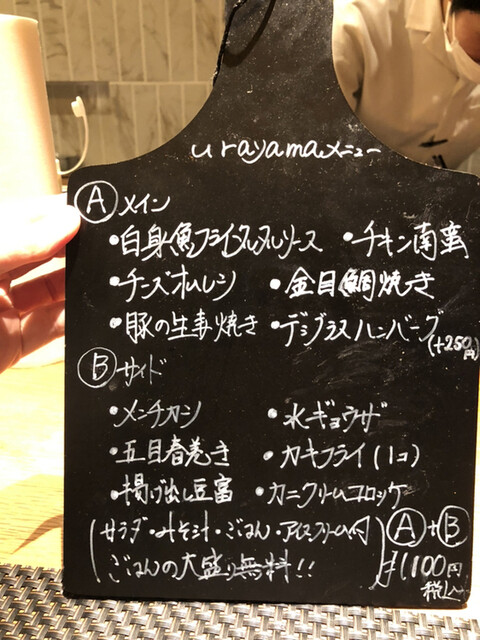 urayamaメニュー
Ⓐ メイン
・白身魚フライタルタルソース ・チキン南蛮
・チーズオムレツ ・金目鯛焼き
・豚の生姜焼き ・デミグラスハンバーグ(+250円)
Ⓑ サイド
・メンチカツ ・水ギョウザ
・五目春巻き ・カキフライ(1コ)
・揚げ出し豆富 ・カニクリームコロッケ
(サラダ・みそ汁・ごはん・アイスクリーム付
ごはんの大盛り無料!!)
Ⓐ+Ⓑ
¥1,100円
税込